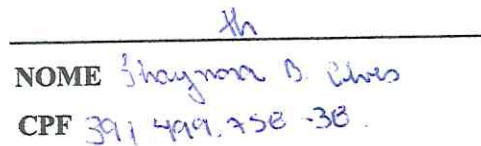 th
NOME Thaynara B. Alves
CPF 391 499.758-38.